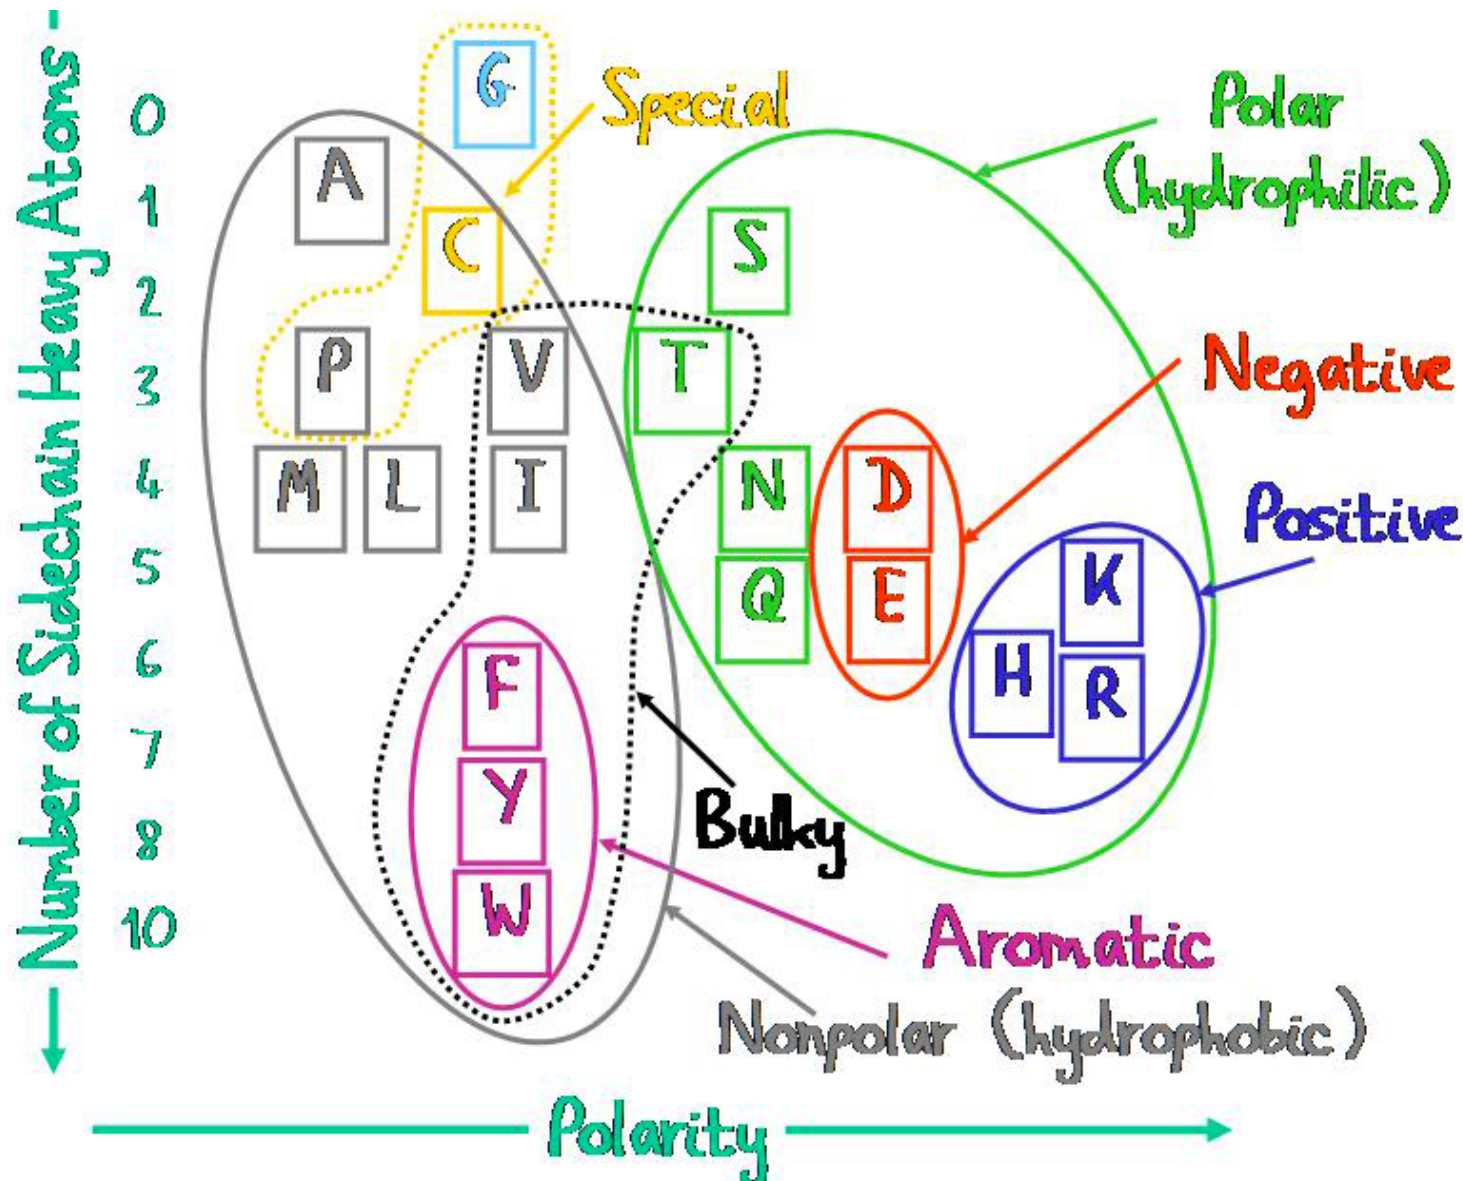 Number of Sidechain Heavy Atoms
0
1
2
3
4
5
6
7
8
10
G
A
C
S
P
V
T
M
L
I
N
D
Q
E
K
H
R
F
Y
W
Special
Polar
(hydrophilic)
Negative
Positive
Bulky
Aromatic
Nonpolar (hydrophobic)
Polarity